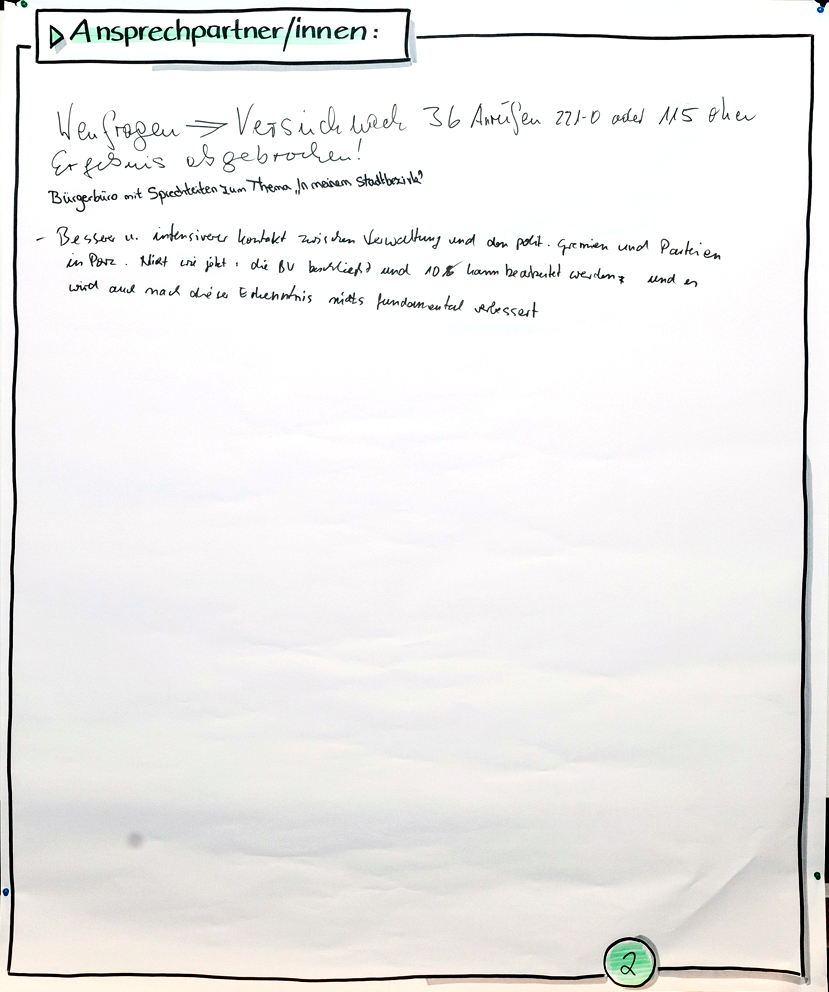 Ansprechpartner/innen:
Wen fragen => Versuch nach 36 Anrufen 221-0 oder 115 ohne
Ergebnis abgebrochen!
Bürgerbüro mit Sprechzeiten zum Thema „In meinem Stadtbezirk"
- Besserer u. intensiverer Kontakt zwischen Verwaltung und den polit. Gremien und Parteien
in Porz. Nicht wie jetzt: die BV beschließt und 10% kann bearbeitet werden, und es
wird auch nach dieser Erkenntnis nichts fundamental verbessert
2